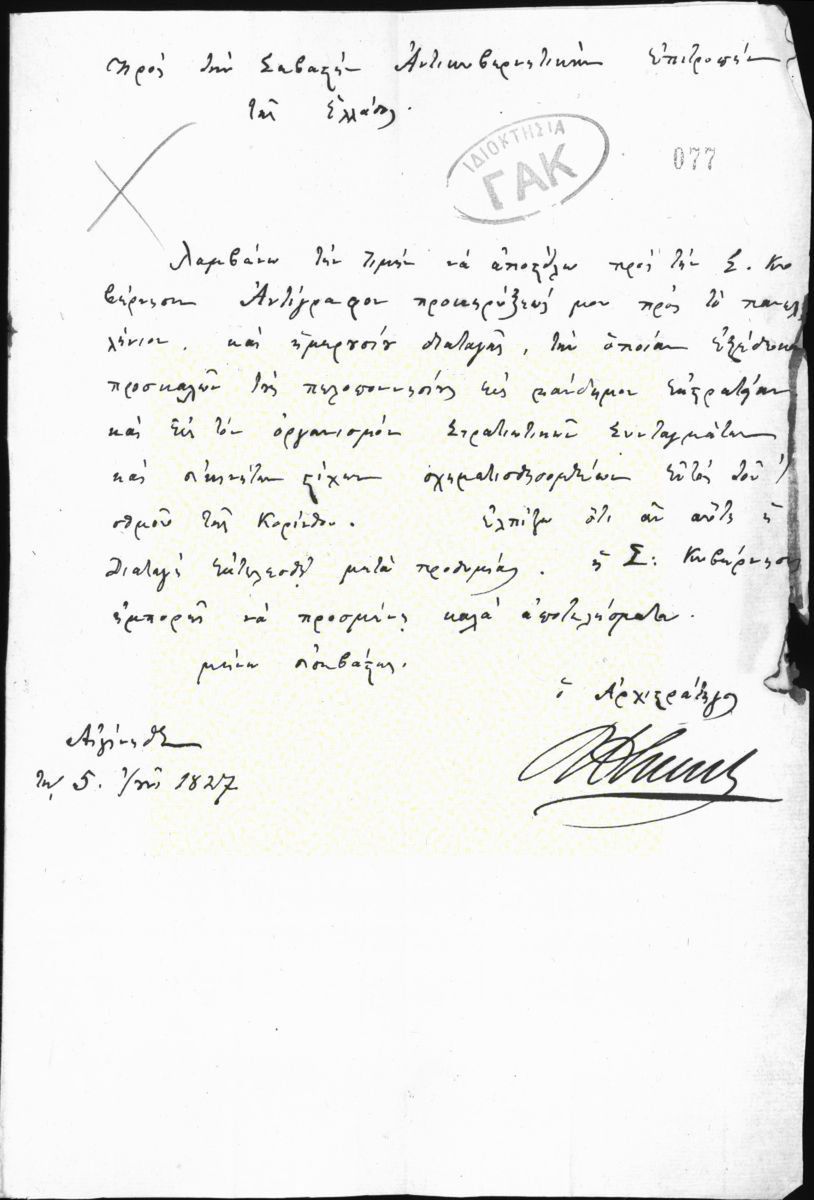 Πρὸς τὴν Σεβαστὴν Ἀντικυβερνητικὴν Ἐπιτροπὴν
τῆς Ἑλλάδος.
ΙΔΙΟΚΤΗΣΙΑ
ΓΑΚ
077
Λαμβάνω τὴν τιμὴν νὰ ἀποστείλω πρὸς τὴν Σ. Κυ
βέρνησιν Ἀντίγραφον προκηρύξεώς μου πρὸς τὸ πανελ
λήνιον, καὶ ἡμερησίου διαταγῆς, τὴν ὁποίαν ἐξέδωκα
προσκαλῶν τοὺς πελοποννησίους εἰς πάνδημον ἐκστρατείαν
καὶ εἰς τὸν ὀργανισμὸν Στρατιωτικῶν Συνταγμάτων
καὶ ἀκινήτων σχηματισθησομένων ἐντὸς τοῦ Ἰ
σθμοῦ τῆς Κορίνθου. Ἐλπίζω ὅτι ἂν αὕτη ἡ
διαταγὴ ἐκτελεσθῇ μετὰ προθυμίας, ἡ Σ: Κυβέρνησις
ἐμπορεῖ νὰ προσμένῃ καλὰ ἀποτελέσματα.
μένω εὐσεβάστως.
ὁ Ἀρχιστράτηγος
Αἰγίνηθεν
τῇ 5. 1827